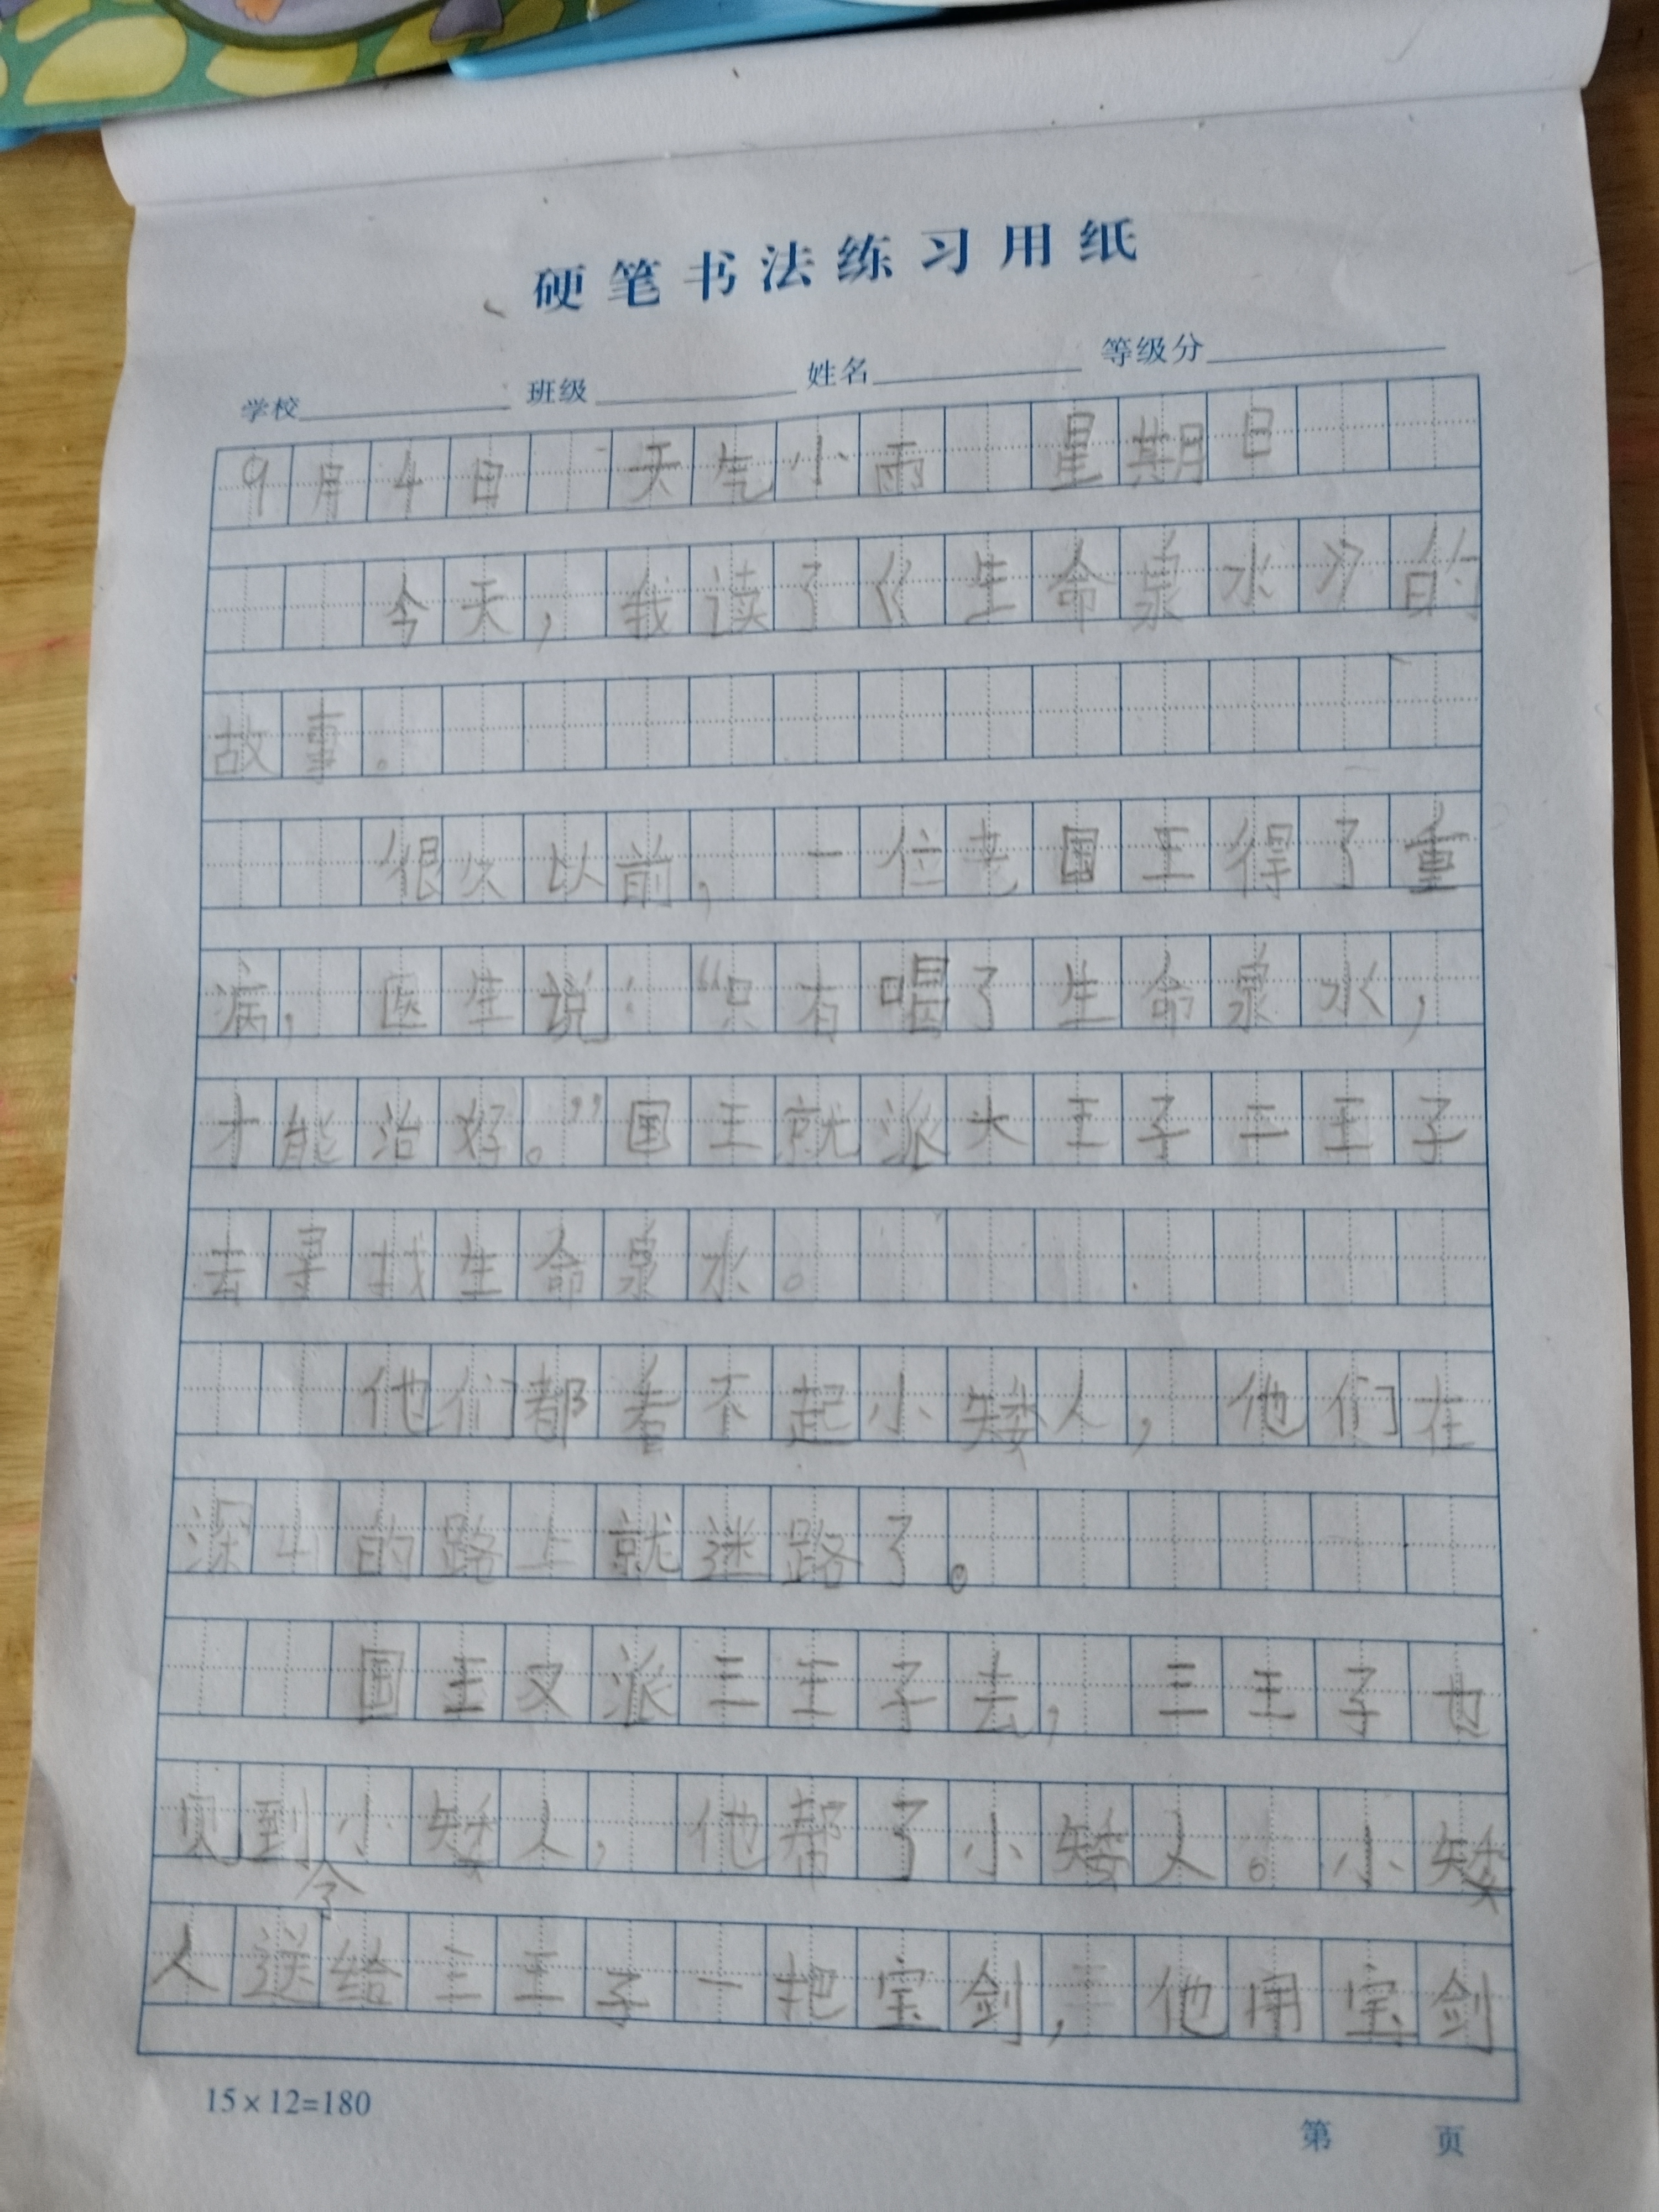 硬笔书法练习用纸
学校 班级 姓名 等级分
9月4日 天气小雨 星期日
今天，我读了《生命泉水》的
故事。
很久以前，一位老国王得了重
病，医生说：“只有喝了生命泉水，
才能治好。”国王就派大王子二王子
去寻找生命泉水。
他们都看不起小矮人，他们在
深山的路上就迷路了。
国王又派三王子去，三王子也
见到小矮人，他帮了小矮人。小矮
人送给三王子一把宝剑，他用宝剑
15×12=180
第 页